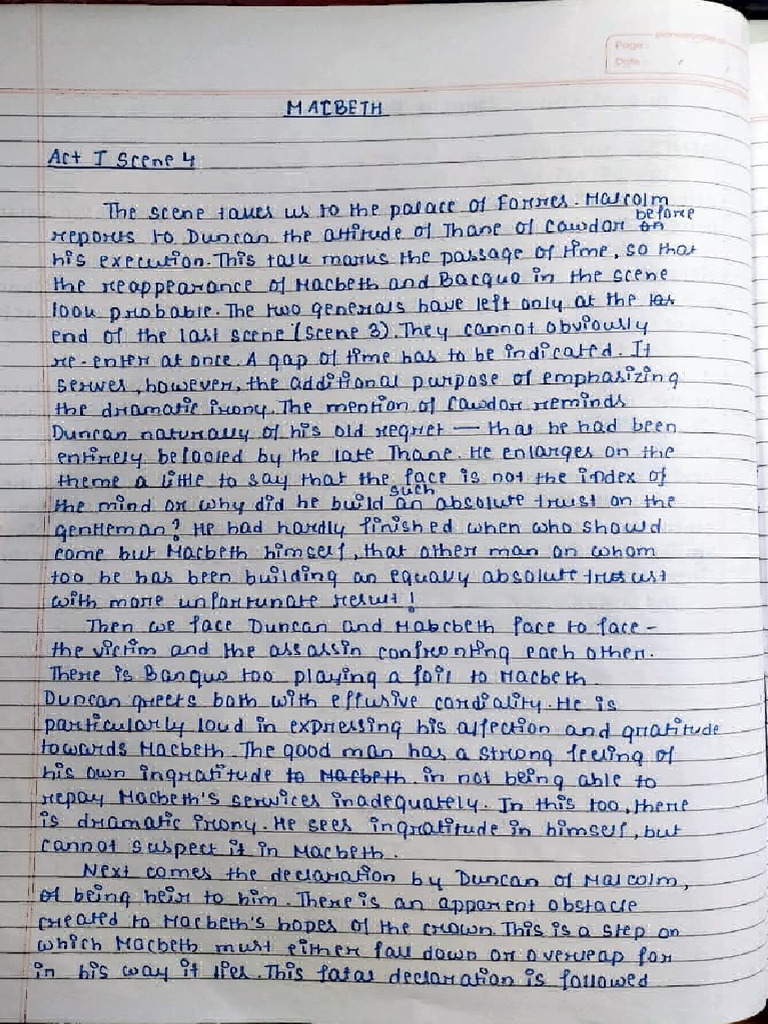 Page :
Date :
MACBETH
Act I Scene 4
The scene takes us to the palace of Forres. Malcolm
reports to Duncan the attitude of Thane of Cawdor before
his execution. This talk marks the passage of time, so that
the reappearance of Macbeth and Bacquo in the scene
look probable. The two generals have left only at the
end of the last scene (Scene 3). They cannot obviously
re-enter at once. A gap of time has to be indicated. It
serves, however, the additional purpose of emphasizing
the dramatic irony. The mention of Cawdor reminds
Duncan naturally of his old regret — that he had been
entirely befooled by the late Thane. He enlarges on the
theme a little to say that the face is not the index of
the mind or why did he build such an absolute trust on the
gentleman? He had hardly finished when who should
come but Macbeth himself, that other man on whom
too he has been building an equally absolute trust
with more unfortunate result!
Then we face Duncan and Mabcbeth face to face -
the victim and the assassin confronting each other.
There is Banquo too playing a foil to Macbeth.
Duncan greets both with effusive cordiality. He is
particularly loud in expressing his affection and gratitude
towards Macbeth. The good man has a strong feeling of
his own ingratitude to Macbeth in not being able to
repay Macbeth's services inadequately. In this too, there
is dramatic irony. He sees ingratitude in himself, but
cannot suspect it in Macbeth.
Next comes the declaration by Duncan of Malcolm,
of being heir to him. There is an apparent obstacle
created to Macbeth's hopes of the crown. This is a step on
which Macbeth must either fall down or overleap for
in his way it lies. This fatal declaration is followed